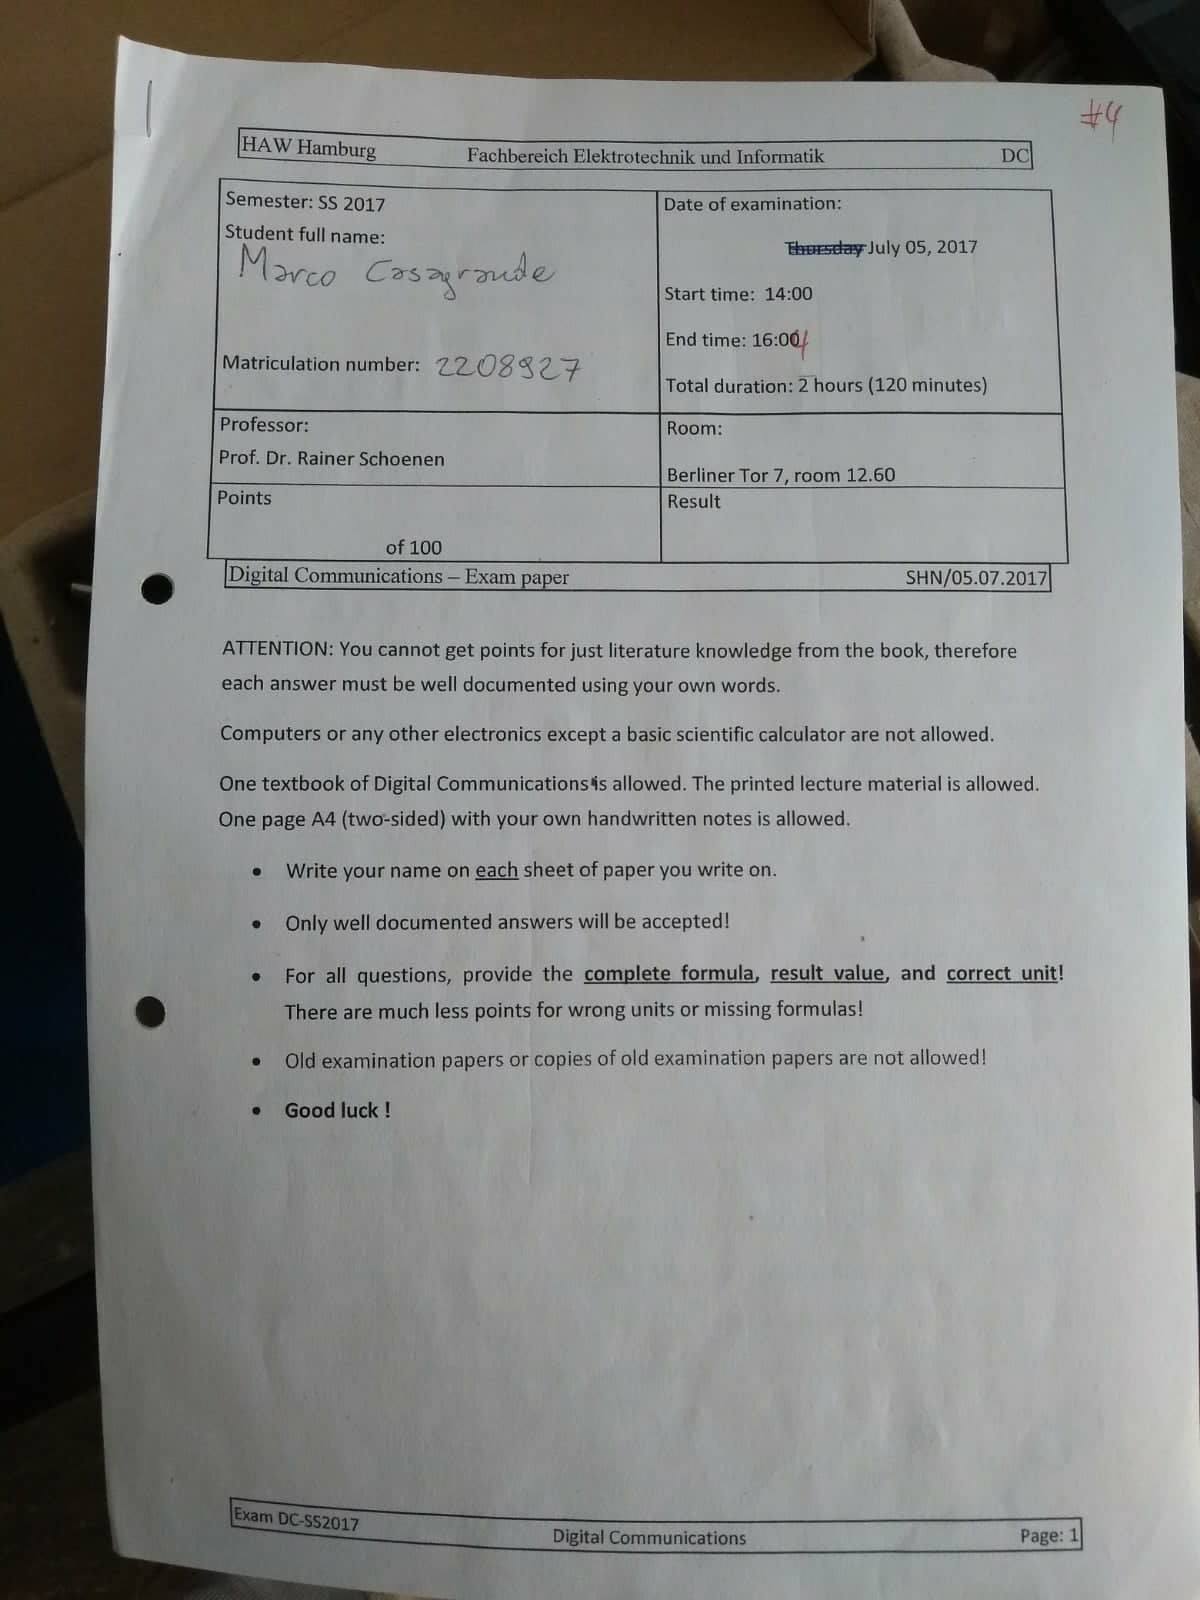 #4
HAW Hamburg Fachbereich Elektrotechnik und Informatik DC
Semester: SS 2017
Student full name:
Marco Casagrande
Matriculation number: 2208927
Date of examination:
Thursday July 05, 2017
Start time: 14:00
End time: 16:004
Total duration: 2 hours (120 minutes)
Professor:
Prof. Dr. Rainer Schoenen
Room:
Berliner Tor 7, room 12.60
Points
of 100
Result
Digital Communications – Exam paper SHN/05.07.2017
ATTENTION: You cannot get points for just literature knowledge from the book, therefore
each answer must be well documented using your own words.
Computers or any other electronics except a basic scientific calculator are not allowed.
One textbook of Digital Communications is allowed. The printed lecture material is allowed.
One page A4 (two-sided) with your own handwritten notes is allowed.
• Write your name on each sheet of paper you write on.
• Only well documented answers will be accepted!
• For all questions, provide the complete formula, result value, and correct unit!
There are much less points for wrong units or missing formulas!
• Old examination papers or copies of old examination papers are not allowed!
• Good luck !
Exam DC-SS2017 Digital Communications Page: 1